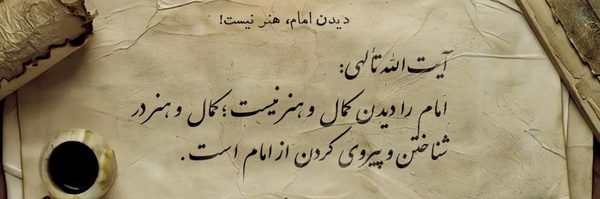 دیدن امام، هنر نیست!
آیت الله تألهی:
امام را دیدن کمال و هنر نیست؛ کمال و هنر در
شناختن و پیروی کردن از امام است.